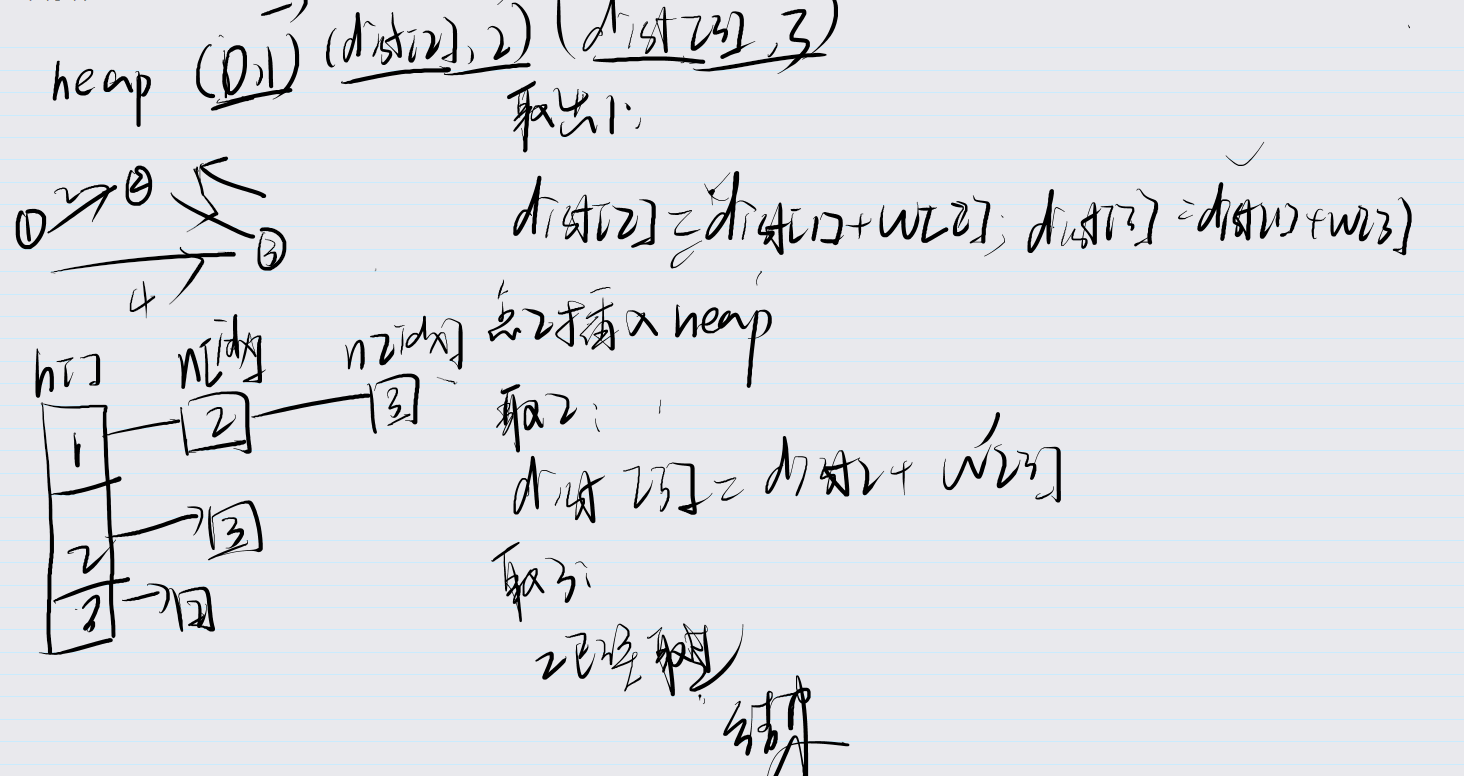 heap (0,1) (dist[2],2) (dist[3],3)
取出1:
① 2 ②
③
4
dist[2]=dist[1]+w[2]; dist[3]=dist[1]+w[3]
点2插入heap
h[] n[idx] n[idx]
1 2 3
取2:
dist[3]=dist2+w[3]
2 3
取3:
3 2
2已经取过
结束